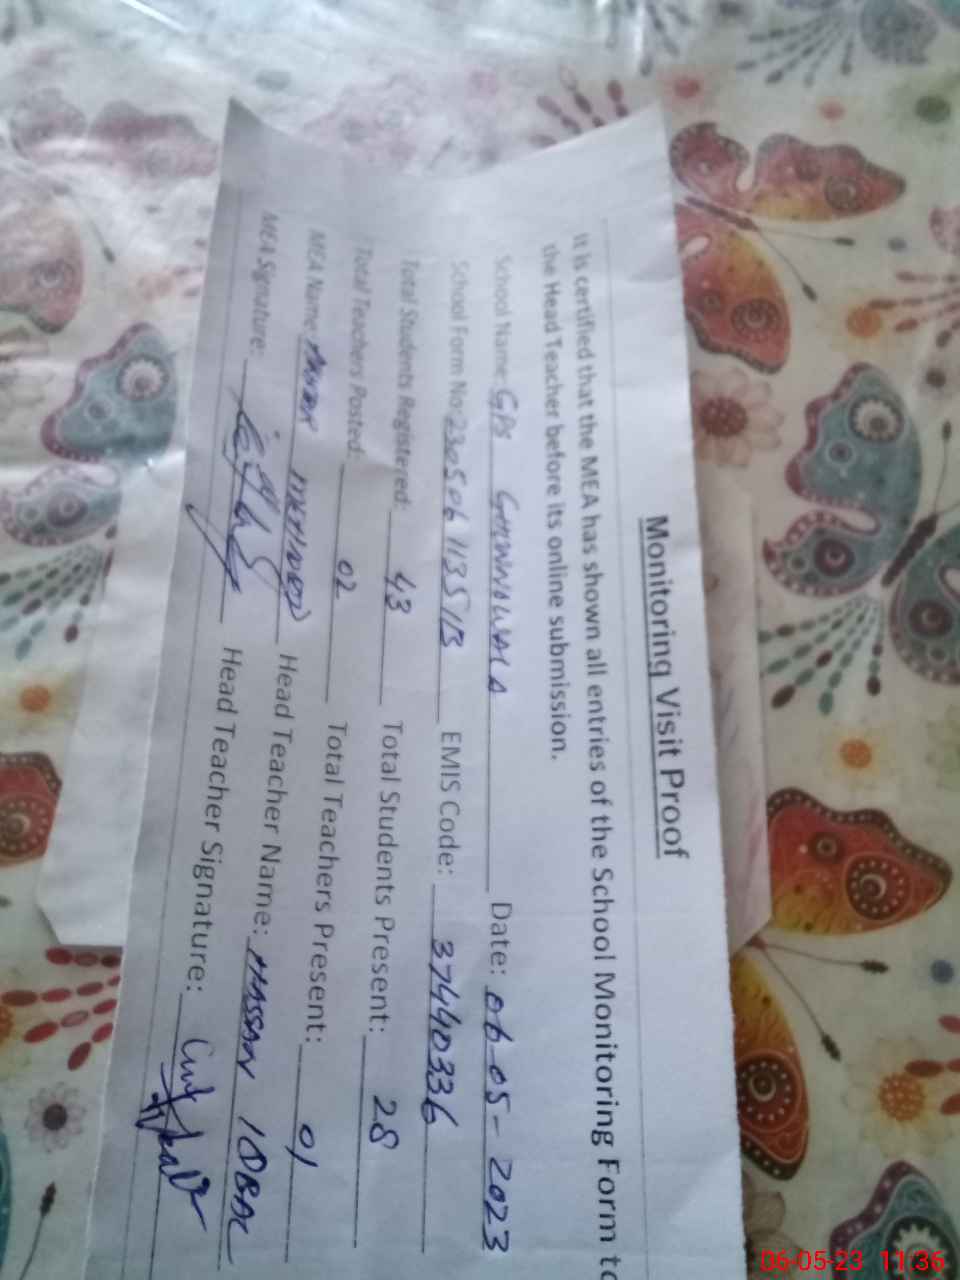 Monitoring Visit Proof
It is certified that the MEA has shown all entries of the School Monitoring Form to
the Head Teacher before its online submission.
School Name: GPS Date: 06-05-2023
School Form No: EMIS Code: 37440336
Total Students Registered: 43 Total Students Present: 28
Total Teachers Posted: 02 Total Teachers Present: 01
MEA Name: Head Teacher Name: HASSAN IQBAL
MEA Signature: Head Teacher Signature:
06-05-23 11:36